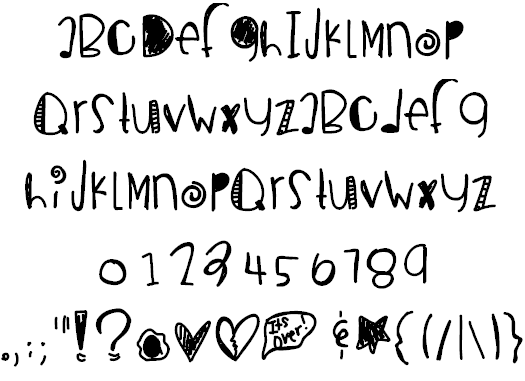 ABCDefghIJKLMnoP
QrstuvwxyzABCdefg
hiJKLMnoPQrstuvwxyz
0123456789
.,:;'"!? It's Over! &{(/|\)}